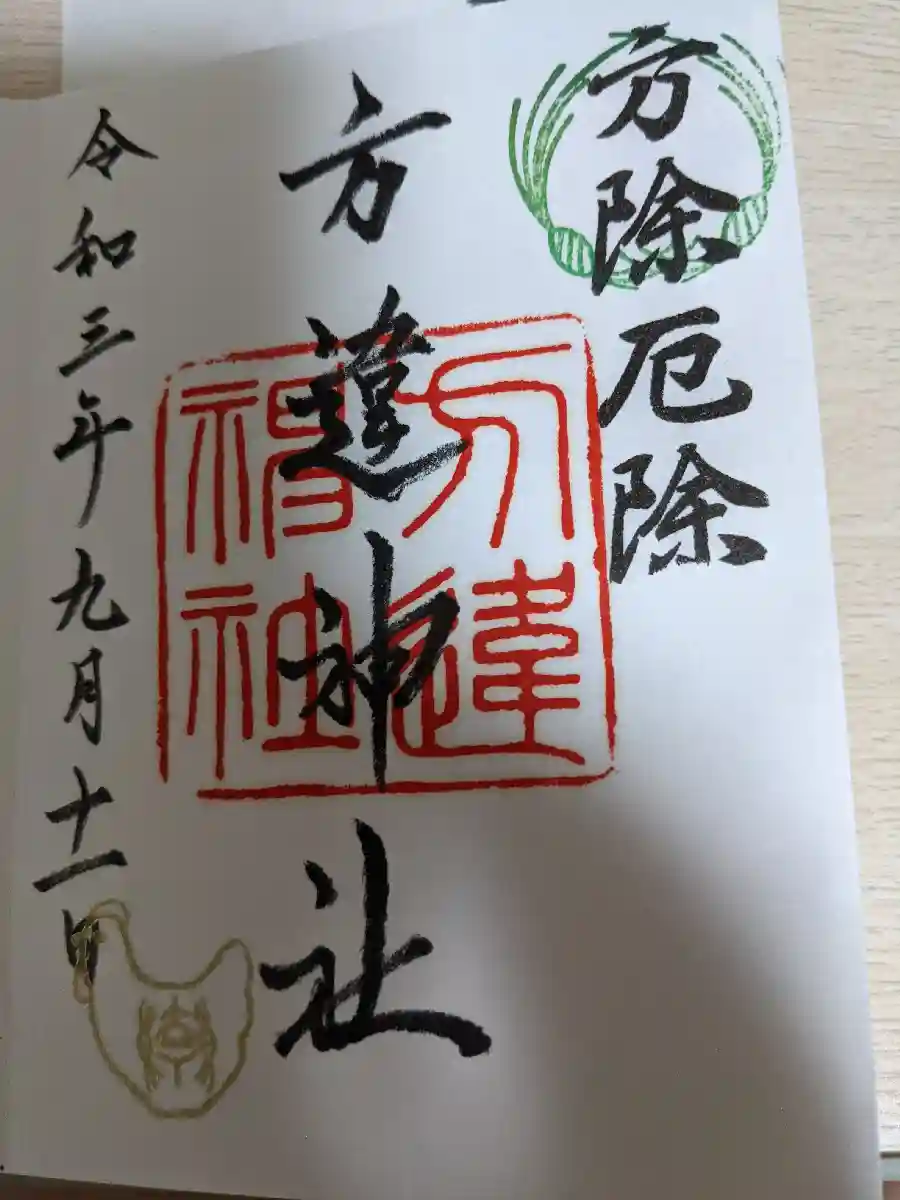 方除厄除
方違神社
方違神社
令和三年九月十一日